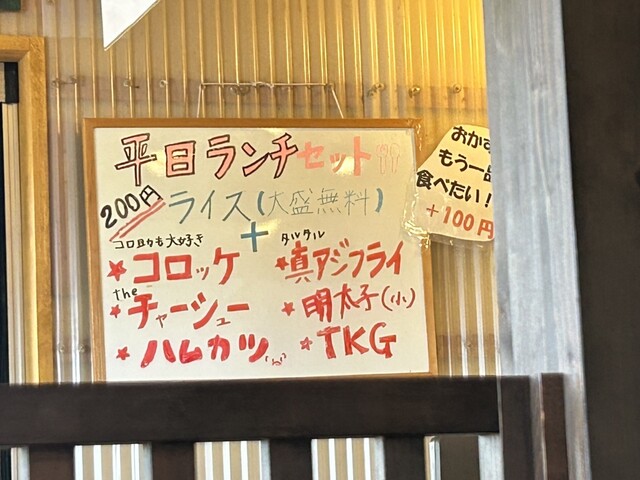 平日ランチセット
200円
ライス(大盛無料)
+
コロ助も大好き
★コロッケ
the
★チャーシュー
★ハムカツ
タルタル
★真アジフライ
★明太子(小)
★TKG
おかず
もう一品
食べたい!
+100円